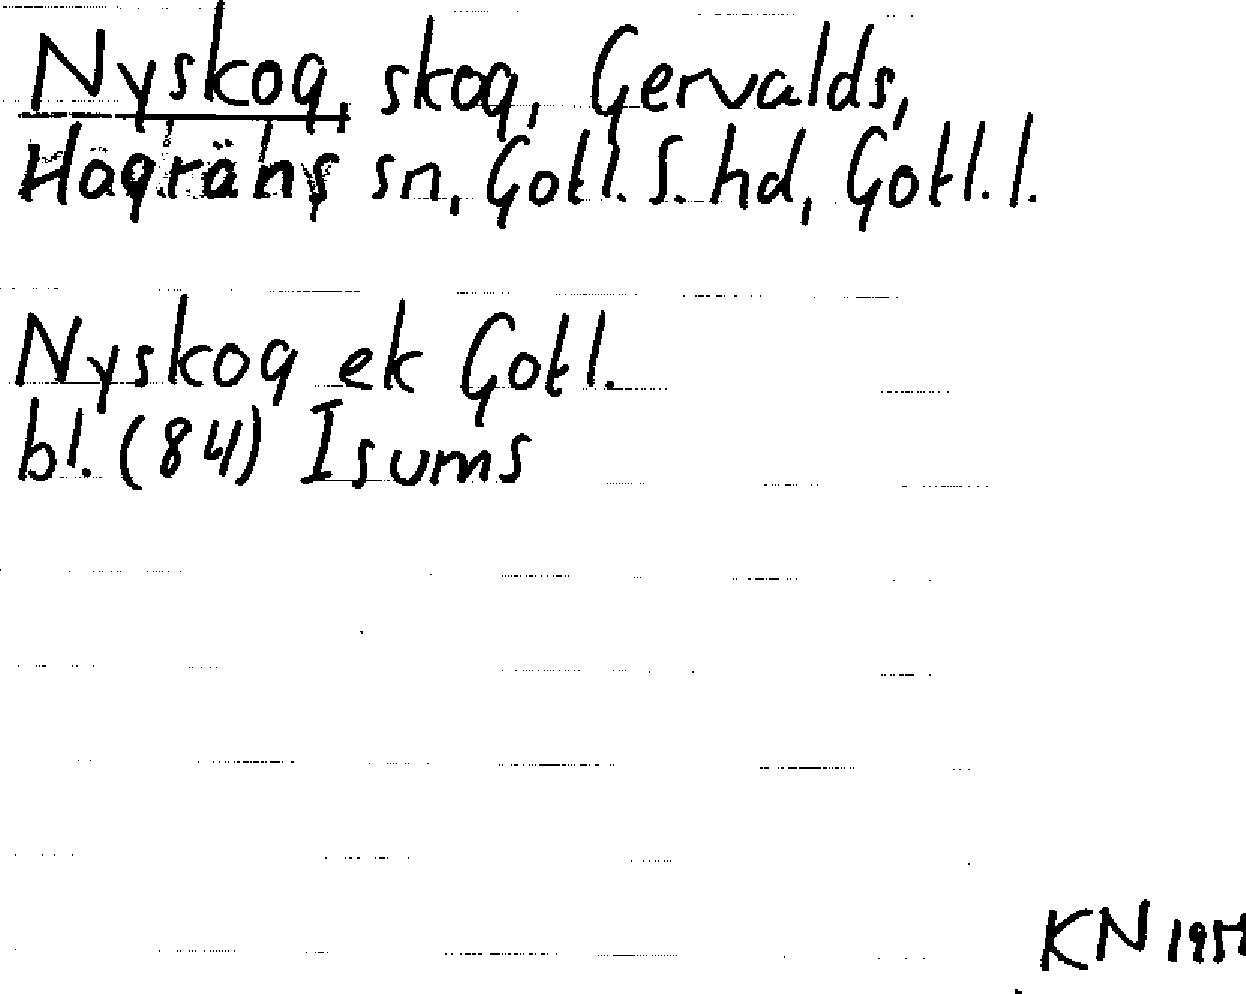 Nyskog, skog, Gervalds,
Högräns sn, Gotl. S. hd, Gotl. l.
Nyskog ek Gotl.
bl. (84) Isums
KN